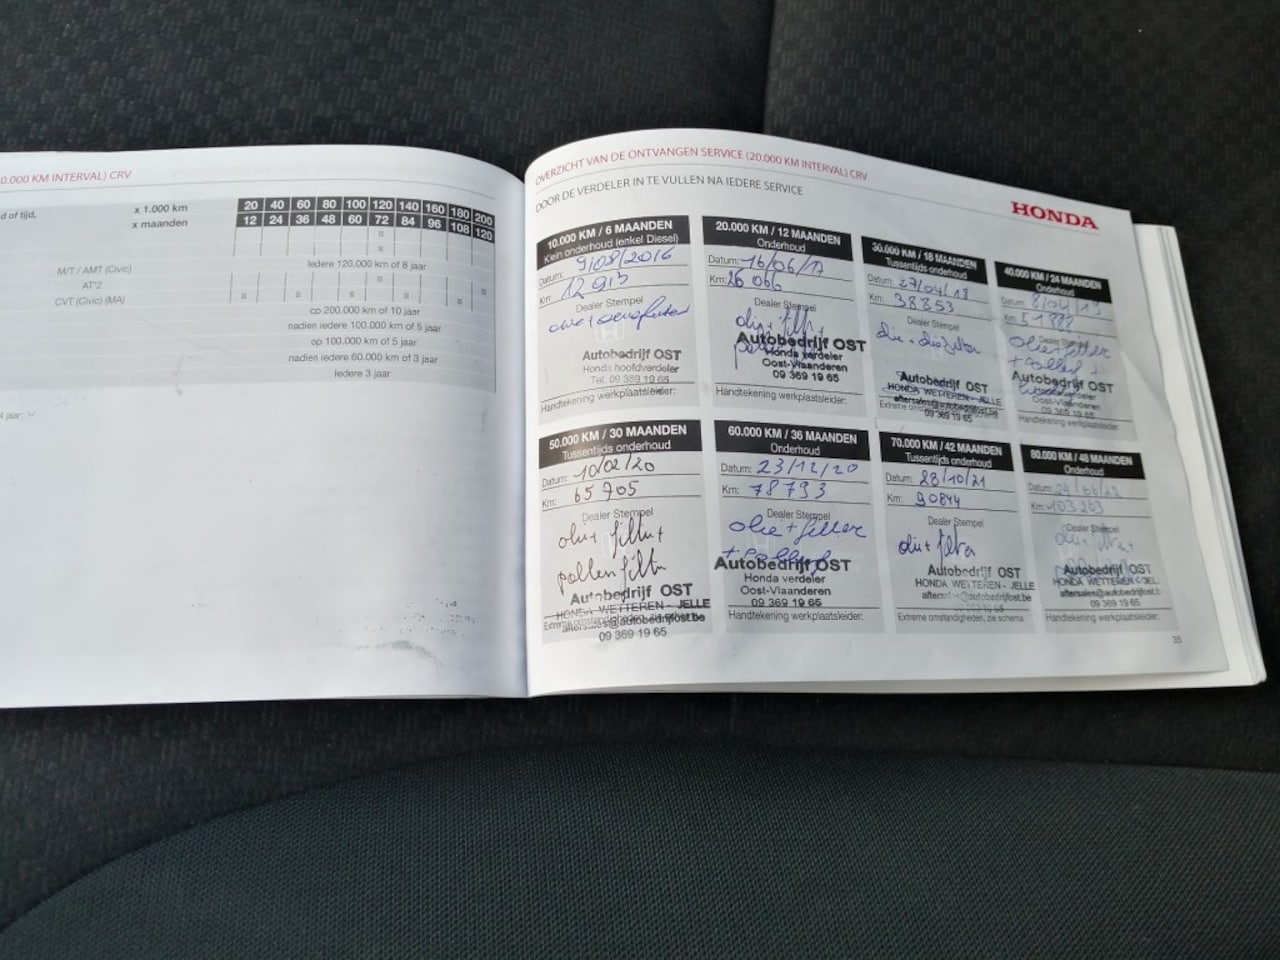 0.000 KM INTERVAL) CRV
d of tijd,
x 1.000 km 20 40 60 80 100 120 140 160 180 200
x maanden 12 24 36 48 60 72 84 96 108 120
Iedere 120.000 km of 8 jaar
M/T / AMT (Civic)
AT*2
CVT (Civic) (MA)
op 200.000 km of 10 jaar
nadien iedere 100.000 km of 5 jaar
op 100.000 km of 5 jaar
nadien iedere 60.000 km of 3 jaar
Iedere 3 jaar
4 jaar
OVERZICHT VAN DE ONTVANGEN SERVICE (20.000 KM INTERVAL) CRV
DOOR DE VERDELER IN TE VULLEN NA IEDERE SERVICE
HONDA
10.000 KM / 6 MAANDEN
Klein onderhoud (enkel Diesel)
Datum: 9/08/2016
Km: 12 913
Dealer Stempel
Autobedrijf OST
Honda hoofdverdeler
Tel. 09 369 19 65
Handtekening werkplaatsleider:
20.000 KM / 12 MAANDEN
Onderhoud
Datum: 16/06/17
Km: 26 066
Dealer Stempel
Autobedrijf OST
Honda verdeler
Oost-Vlaanderen
09 369 19 65
Handtekening werkplaatsleider:
30.000 KM / 18 MAANDEN
Tussentijds onderhoud
Datum: 27/04/18
Km: 38853
Dealer Stempel
olie + oliefilter
Autobedrijf OST
HONDA WETTEREN - JELLE
aftersales@autobedrijfost.be
09 369 19 65
40.000 KM / 24 MAANDEN
Onderhoud
Datum: 8/04/19
Km:
Dealer Stempel
olie + filter
+ pollen +
Autobedrijf OST
Honda verdeler
Oost-Vlaanderen
09 369 19 65
Handtekening werkplaatsleider:
50.000 KM / 30 MAANDEN
Tussentijds onderhoud
Datum: 10/02/20
Km: 65 705
Dealer Stempel
olie + filter +
pollenfilter
Autobedrijf OST
HONDA WETTEREN - JELLE
Extreme omstandigheden, zie schema
aftersales@autobedrijfost.be
09 369 19 65
60.000 KM / 36 MAANDEN
Onderhoud
Datum: 23/12/20
Km: 78793
Dealer Stempel
olie + filter
+ pollenf
Autobedrijf OST
Honda verdeler
Oost-Vlaanderen
09 369 19 65
Handtekening werkplaatsleider:
70.000 KM / 42 MAANDEN
Tussentijds onderhoud
Datum: 28/10/21
Km: 90844
Dealer Stempel
olie + filter
Autobedrijf OST
HONDA WETTEREN - JELLE
aftersales@autobedrijfost.be
09 369 19 65
Extreme omstandigheden, zie schema
80.000 KM / 48 MAANDEN
Onderhoud
Datum:
Km: 103263
Dealer Stempel
olie + filter +
Autobedrijf OST
HONDA WETTEREN - JEL
aftersales@autobedrijfost.b
09 369 19 65
Handtekening werkplaatsleider:
35